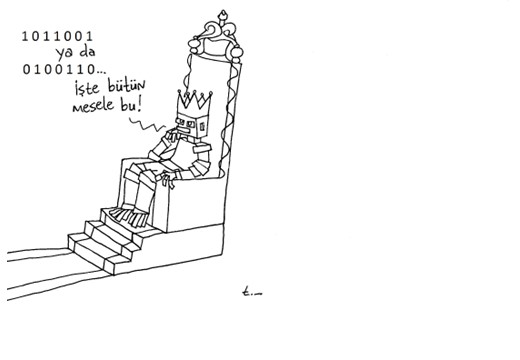 1011001
ya da
0100110...
İşte bütün
mesele bu!
t.__